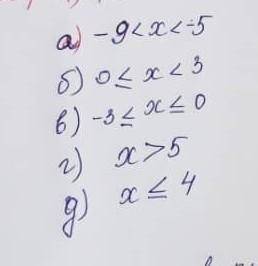 а) -9 < x < -5
б) 0 ≤ x < 3
в) -3 ≤ x ≤ 0
г) x > 5
д) x ≤ 4